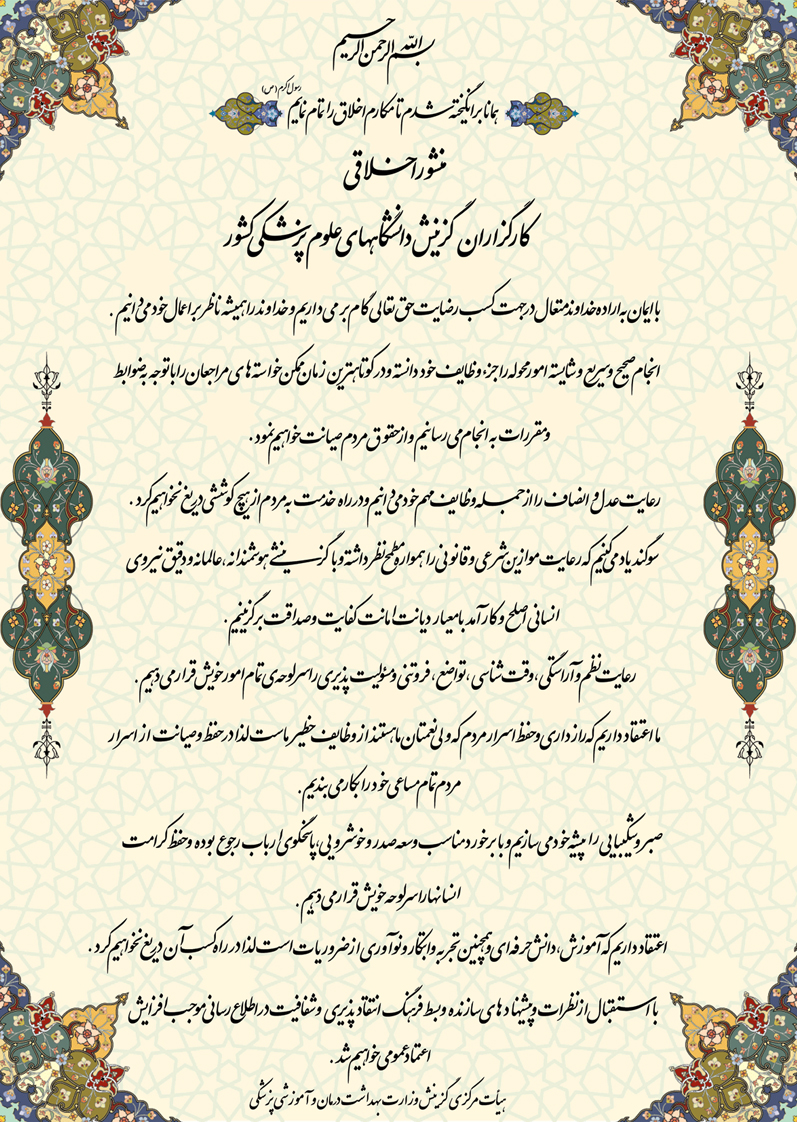 بسم الله الرحمن الرحیم
رسول اکرم (ص)
همانا برانگیخته شدم تا مکارم اخلاق را تمام نمایم
منشور اخلاقی
کارگزاران گزینش دانشگاههای علوم پزشکی کشور
با ایمان به اراده خداوند متعال در جهت کسب رضایت حق تعالی گام بر می داریم و خداوند را همیشه ناظر بر اعمال خود می دانیم .
انجام صحیح و سریع و شایسته امور محوله را جزء وظایف خود دانسته و در کوتاهترین زمان ممکن خواسته های مراجعان را با توجه به ضوابط
و مقررات به انجام می رسانیم و از حقوق مردم صیانت خواهیم نمود .
رعایت عدل و انصاف را از جمله وظایف مهم خود می دانیم و در راه خدمت به مردم از هیچ کوششی دریغ نخواهیم کرد .
سوگند یاد می کنیم که رعایت موازین شرعی و قانونی را همواره مطمح نظر داشته و با گزینشی هوشمندانه ، عالمانه و دقیق نیروی
انسانی اصلح و کارآمد با معیار دیانت امانت کفایت و صداقت برگزینیم .
رعایت نظم و آراستگی ، وقت شناسی ، تواضع ، فروتنی و مسئولیت پذیری را سرلوحه ی تمام امور خویش قرار می دهیم .
ما اعتقاد داریم که رازداری و حفظ اسرار مردم که ولی نعمتان ما هستند از وظایف خطیر ماست لذا در حفظ و صیانت از اسرار
مردم تمام مساعی خود را بکار می بندیم .
صبر و شکیبایی را پیشه خود می سازیم و با برخورد مناسب وسعه صدر و خوشرویی ، پاسخگوی ارباب رجوع بوده و حفظ کرامت
انسانها را سرلوحه خویش قرار می دهیم .
اعتقاد داریم که آموزش ، دانش حرفه ای و همچنین تجربه و ابتکار و نوآوری از ضروریات است لذا در راه کسب آن دریغ نخواهیم کرد .
با استقبال از نظرات و پیشنهاد های سازنده و بسط فرهنگ انتقاد پذیری و شفافیت در اطلاع رسانی موجب افزایش
اعتماد عمومی خواهیم شد .
هیأت مرکزی گزینش وزارت بهداشت درمان و آموزش پزشکی